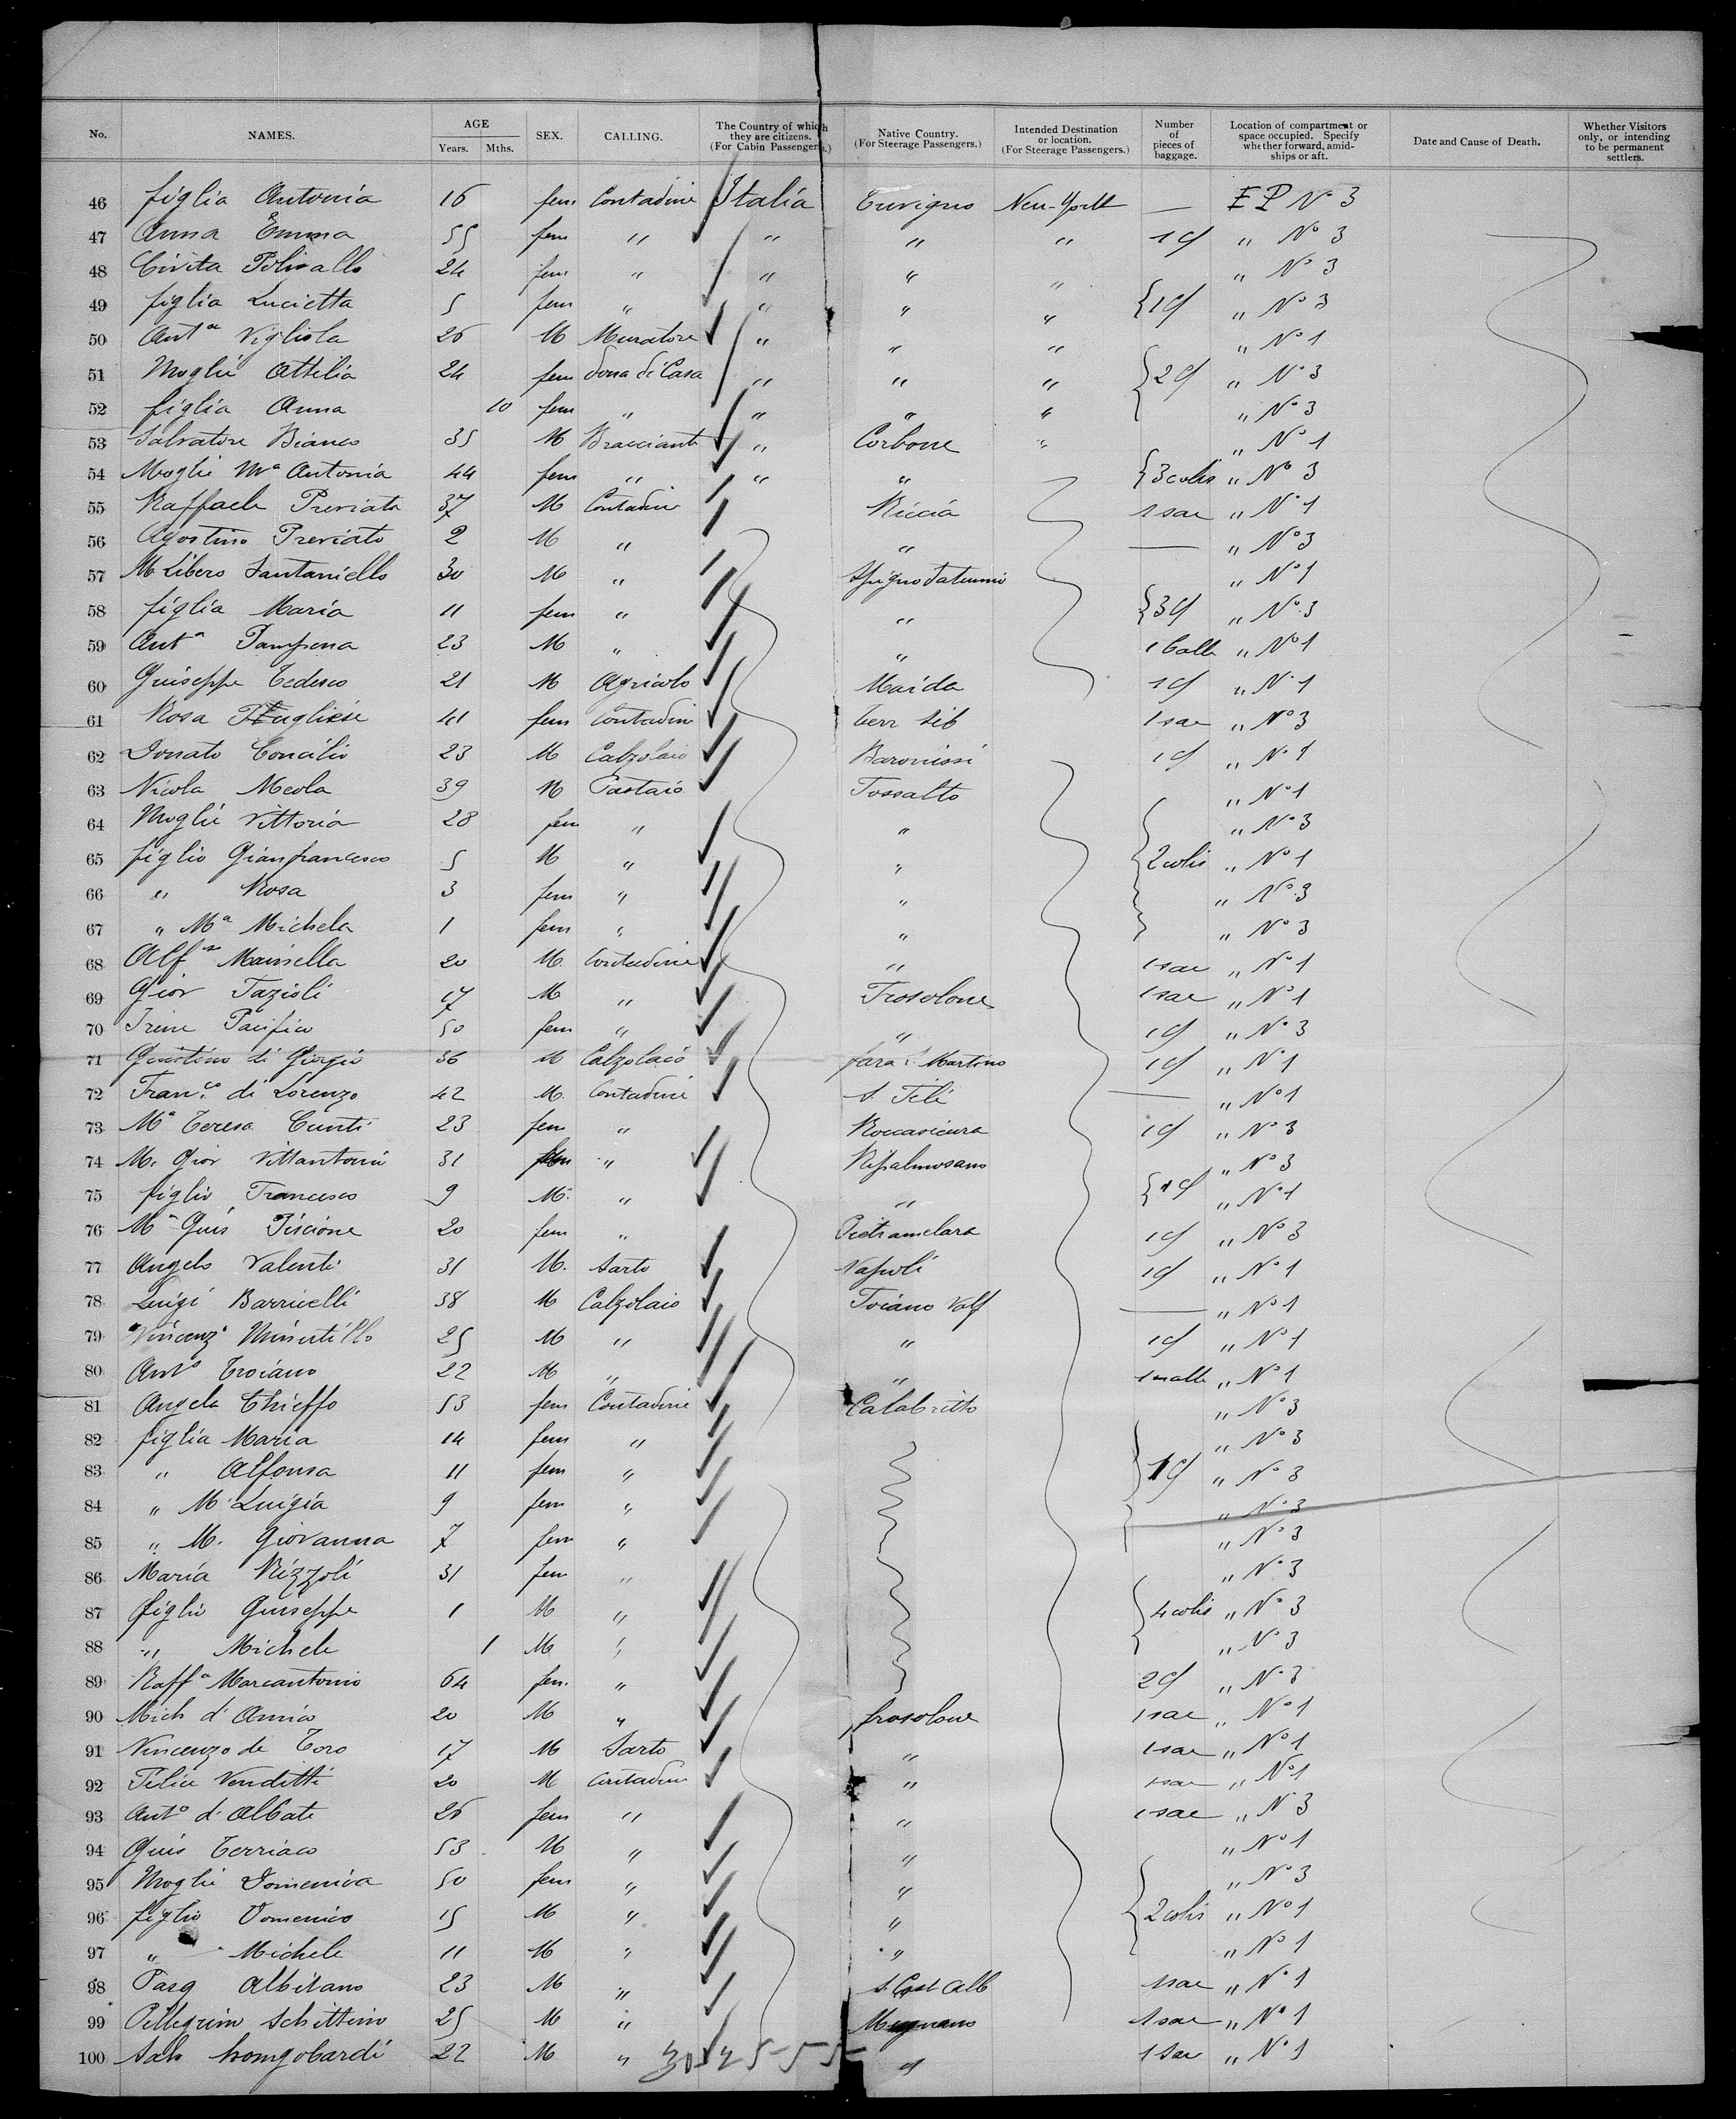 No. NAMES. AGE Years. Mths. SEX. CALLING. The Country of which they are citizens. (For Cabin Passengers.) Native Country. (For Steerage Passengers.) Intended Destination or location. (For Steerage Passengers.) Number of pieces of baggage. Location of compartment or space occupied. Specify whether forward, amidships or aft. Date and Cause of Death. Whether Visitors only, or intending to be permanent settlers.
46 figlia Antonia 16 fem Contadine Italia New-York — N° 3
47 Anna Emma 55 fem " " " " 1 " N° 3
48 Civita 24 fem " " " " " N° 3
49 figlia Lucietta 5 fem " " " " {1 " N° 3
50 Antª Vigliola 26 M Muratore " " " " N° 1
51 Moglie Attilia 24 fem Dona di Casa " " " {2 " N° 3
52 figlia Anna 10 fem " " " " " N° 3
53 Salvatore Bianco 35 M Bracciante " Corbone " " N° 1
54 Moglie Mª Antonia 44 fem " " " {3 colis " N° 3
55 Raffaele Previato 37 M Contadine Riccia 1 sac " N° 1
56 Agostino Previato 2 M " " — " N° 3
57 M. Libero Santaniello 30 M " " N° 1
58 figlia Maria 11 fem " " {3 " N° 3
59 Antº Pampena 23 M " " 1 balle " N° 1
60 Guiseppe Tedesco 21 M Agricolo Maida 1 " N° 1
61 Rosa 41 fem Contadine 1 sac " N° 3
62 Donato Concilio 23 M Calzolaio Baronissi 1 " N° 1
63 Nicola Meola 39 M Pastaio Fossalto " N° 1
64 Moglie Vittoria 28 fem " " " N° 3
65 figlio Gianfrancesco 5 M " " 2 colis " N° 1
66 " Rosa 3 fem " " " N° 3
67 " Mª Michela 1 fem " " " N° 3
68 Alfº Mainella 20 M. Contadine " 1 sac " N° 1
69 Giov Fazioli 17 M " Frosolone 1 sac " N° 1
70 Irene Pacifico 50 fem " " 1 " N° 3
71 Giustino di Giorgio 36 M Calzolaio fara S. Martino 1 " N° 1
72 Fran.co di Lorenzo 42 M. Contadine — " N° 1
73 Mª Teresa Cunti 23 fem " Roccasicura 1 " N° 3
74 M. Giov Vittantonio 31 fem " Ripalmosano " N° 3
75 figlio Francesco 9 M. " " {1 " N° 1
76 Mª Guis Piscione 20 fem " Pietramelara 1 " N° 3
77 Angelo Valenti 31 M. Sarto Napoli 1 " N° 1
78 Luigi Barricelli 38 M Calzolaio — " N° 1
79 Vincenzº 25 M " " 1 " N° 1
80 Antº Troiano 22 M " " 1 malle " N° 1
81 Angela Chieffo 53 fem Contadine Calabritto " N° 3
82 figlia Maria 14 fem " " N° 3
83 " Alfonsa 11 fem " 1 " N° 3
84 " M. Luigia 9 fem " " N° 3
85 " M. Giovanna 7 fem " " N° 3
86 Maria Rizzoli 31 fem " " N° 3
87 figlio Guiseppe 1 M " 4 colis " N° 3
88 " Michele 1 M " " N° 3
89 Raffª Marcantonio 64 fem. " 2 " N° 3
90 Mich d'Amico 20 M " frosolone 1 sac " N° 1
91 Vincenzo de Toro 17 M Sarto " 1 sac " N° 1
92 Felice Venditti 20 M Contadine " 1 sac " N° 1
93 Antº d'Albate 26 fem " " 1 sac " N° 3
94 Guis Terriaco 53 M " " " N° 1
95 Moglie Domenica 50 fem " " " N° 3
96 figlio Domenico 15 M " " {2 colis " N° 1
97 " Michele 11 M " " " N° 1
98 Pasq Albitano 23 M " 1 sac " N° 1
99 Pellegrino Schettino 25 M " Mugnano 1 sac " N° 1
100 22 M " " 1 Sac " N° 1